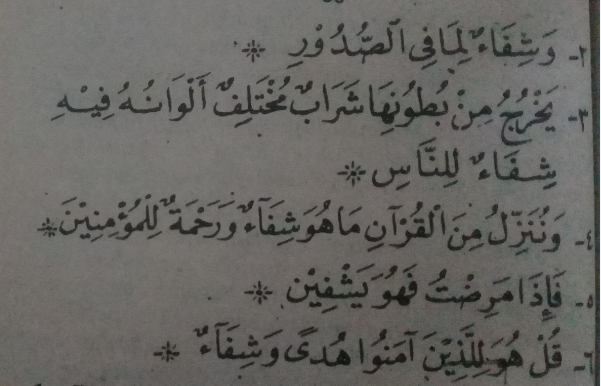 ٢- وَشِفَاءٌ لِمَا فِى الصُّدُوْرِ ✳
٣- يَخْرُجُ مِنْ بُطُونِهَا شَرَابٌ مُخْتَلِفٌ أَلْوَانُهُ فِيْهِ
شِفَاءٌ لِلنَّاسِ ✳
٤- وَنُنَزِّلُ مِنَ الْقُرْآنِ مَا هُوَ شِفَآءٌ وَرَحْمَةٌ لِلْمُؤْمِنِيْنَ ✳
٥- فَإِذَا مَرِضْتُ فَهُوَ يَشْفِيْنِ ✳
٦- قُلْ هُوَ لِلَّذِيْنَ آمَنُوا هُدًى وَشِفَآءٌ ✳